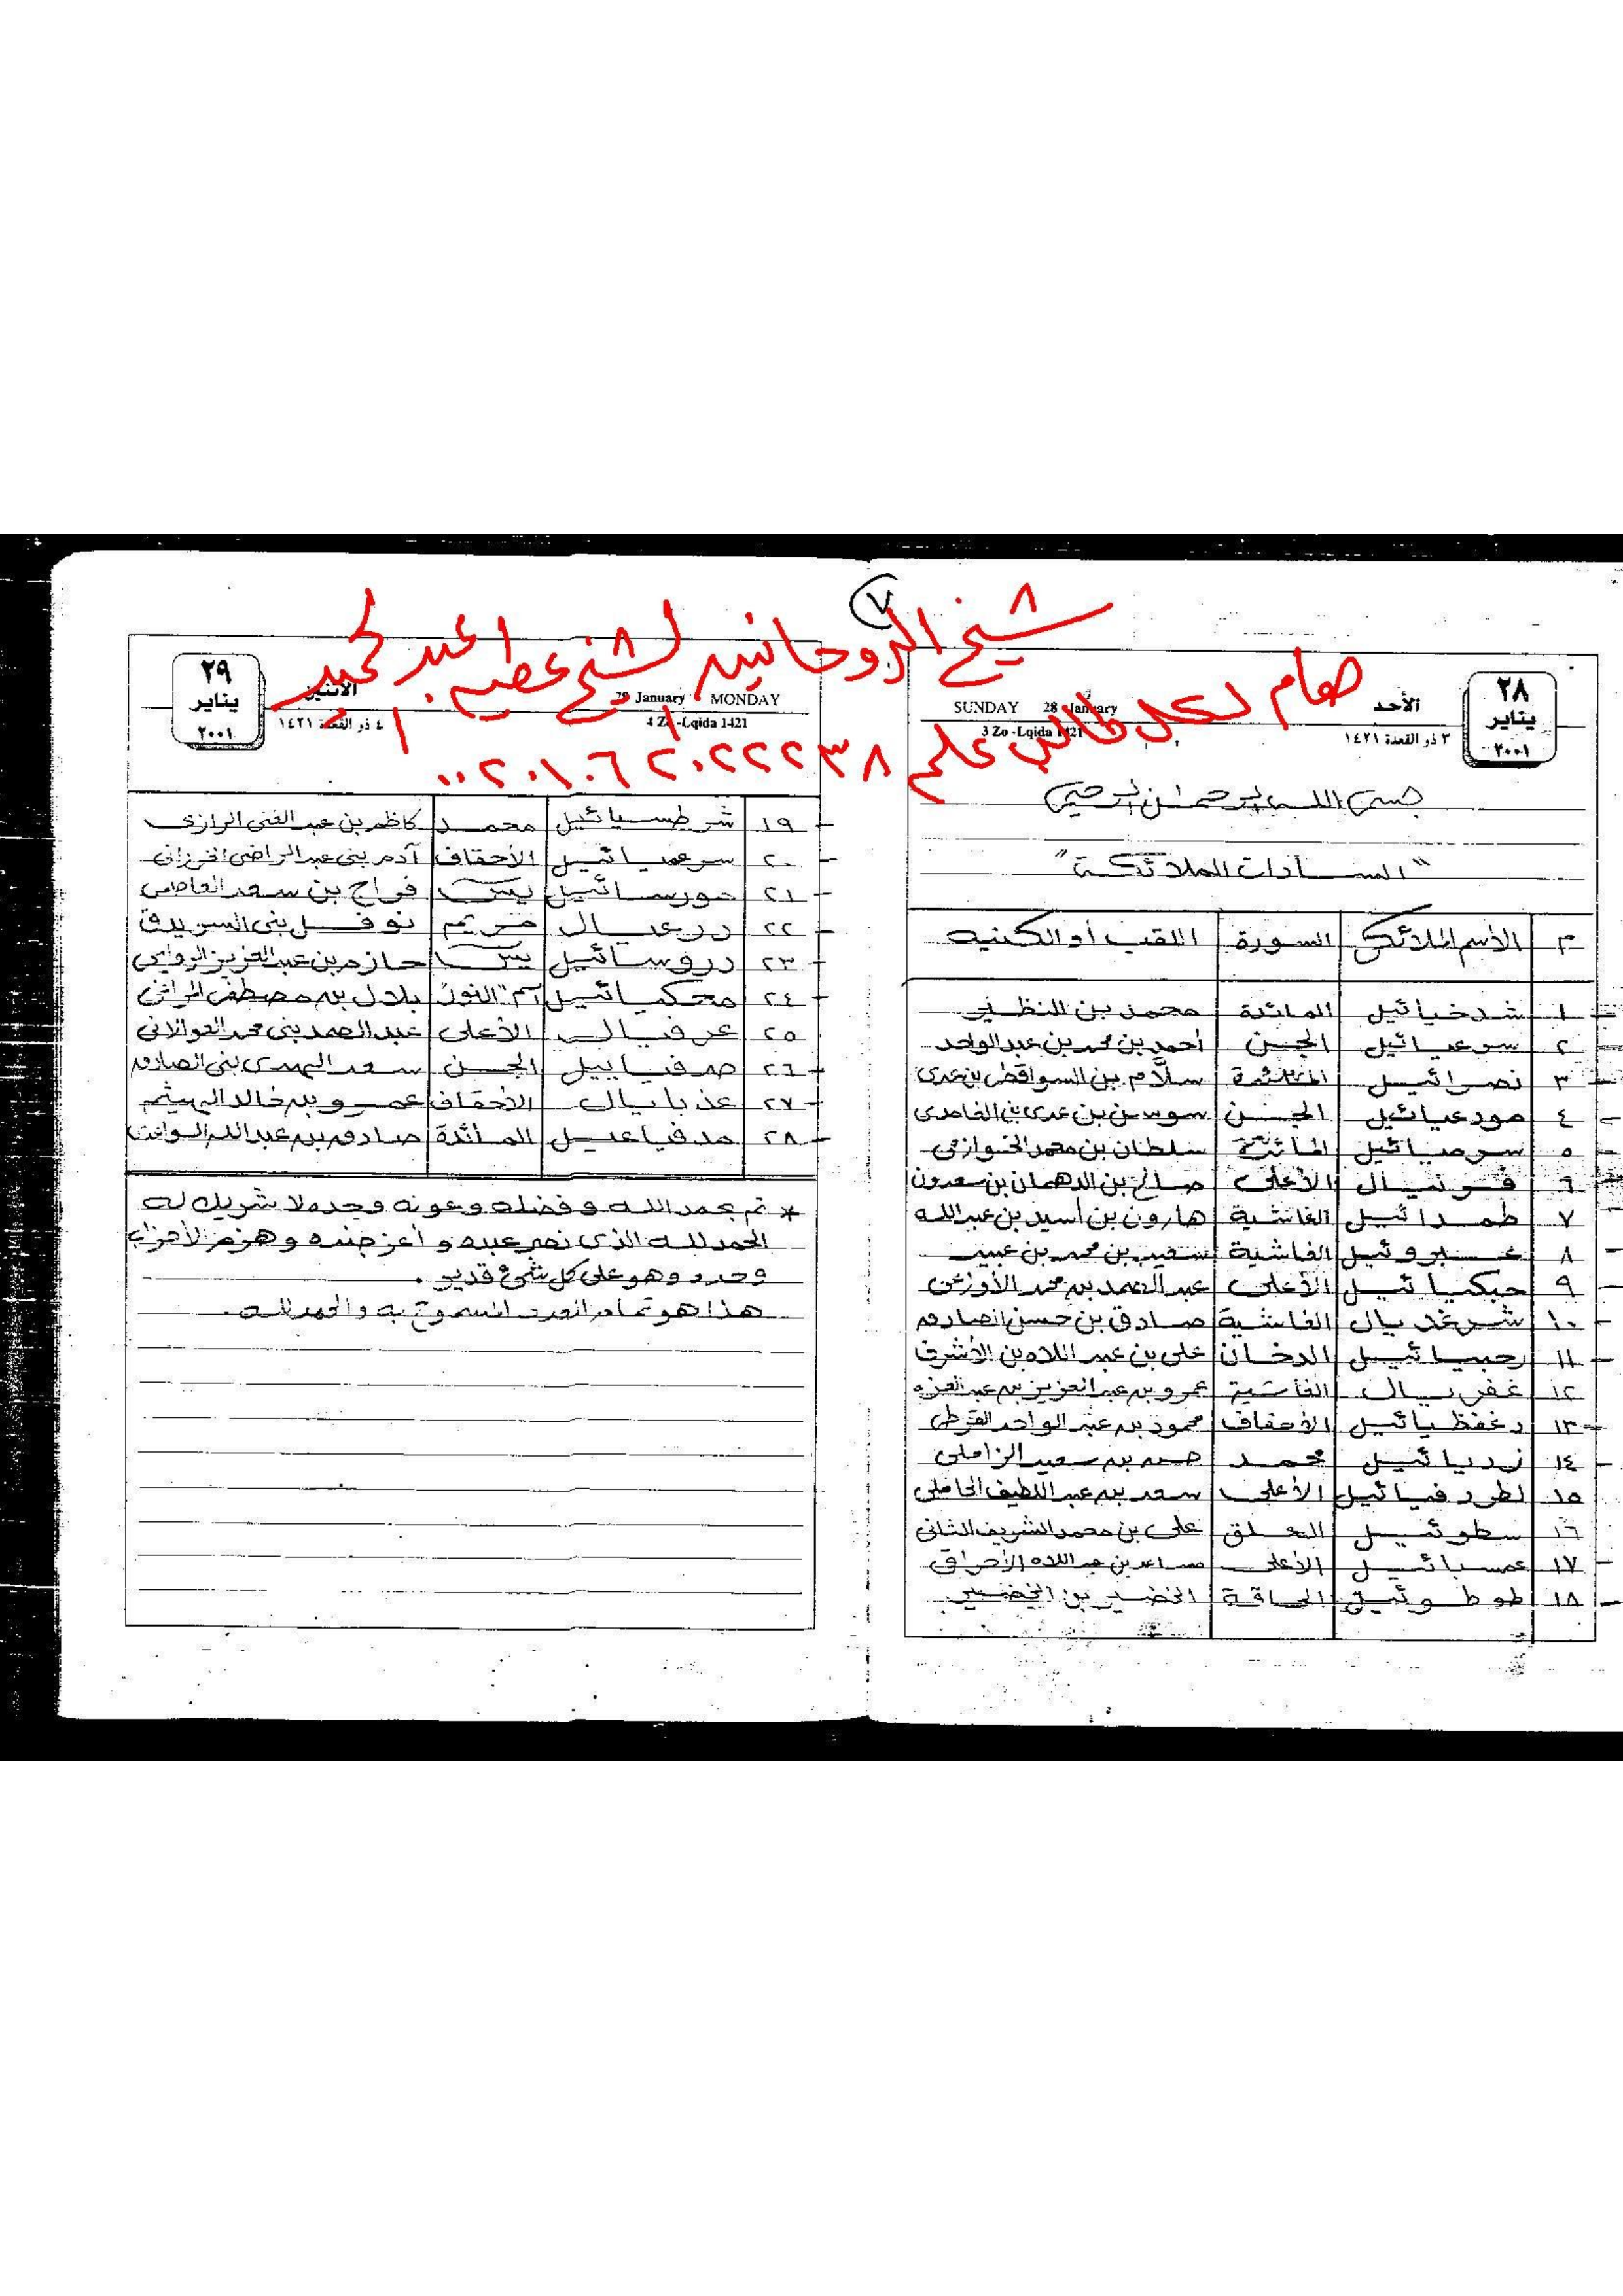 ٧
شيخ الروحانيين الشيخ عطيه عبد الحميد
هام لكل طالب علم ٠٠٢٠١٠٦٢٠٢٢٢٣٨
٢٨
يناير
٢٠٠١
الأحد
٣ ذو القعدة ١٤٢١
SUNDAY 28 January
3 Zo -Lqida 1421
بسم الله الرحمن الرحيم
"السادات الملائكة"
م الأسم الملائكى السورة اللقب أو الكنيه
١ شدخيائيل المائدة محمد بن النظير
٢ سرعيائيل الجن أحمد بن محمد بن عبد الواحد
٣ نصرائيل سلام بن السواقط بن عدى
٤ هودعيائيل الجن سوسن بن عدى بن الغامدى
٥ سرصيائيل المائدة سلطان بن محمد الخوارزمى
٦ الأعلى صالح بن الدهمان بن سعدون
٧ طمدائيل الغاشية هارون بن أسيد بن عبد الله
٨ الغاشية سعيد بن محمد بن عبيد
٩ حبكيائيل الأعلى عبد الصمد بن محمد الأوزاعى
١٠ شرغديال الغاشية صادق بن حسن الصادق
١١ رحبيائيل الدخان على بن عبد اللاه بن الأشرف
١٢ غفريال الغاشية عمرو بن عبد العزيز بن عبد العزيز
١٣ دغفظيائيل الأحقاف محمود بن عبد الواحد القرطى
١٤ زديائيل محمد حسن بن سعيد الزاملى
١٥ لطردفيائيل الأعلى سعد بن عبد اللطيف الحاملى
١٦ سطوئيل العلق على بن محمد الشريف الثانى
١٧ عمسيائيل الأعلى مساعد بن عبد اللاه الأحراقى
١٨ طوطوئيل الحاقة الخضير بن الخضير
٢٩
يناير
٢٠٠١
الاثنين
٤ ذو القعدة ١٤٢١
29 January MONDAY
4 Zo -Lqida 1421
١٩ شرطسيائيل محمد كاظم بن عبد الغنى الرازى
٢٠ سرعميائيل الأحقاف آدم بنى عبد الراضى
٢١ حورسائيل يس فراج بن سعد العاصمى
٢٢ درعيال مريم نوفل بنى السريدق
٢٣ دروسائيل يس حازم بن عبد العزيز الروابى
٢٤ محكيائيل النور بلال بن مصطفى
٢٥ عرفيال الأعلى عبد الصمد بنى محمد الخولانى
٢٦ صدفيابيل الجن سعد المهدى بنى الصادق
٢٧ عذبايال الأحقاف عمرو بن خالد الهيثم
٢٨ هدفياعيل المائدة صادق بن عبد الله
* تم بحمد الله وفضله وعونه وحده لا شريك له
الحمد لله الذى نصر عبده وأعز جنده وهزم الأحزاب
وحده وهو على كل شئ قدير .
هذا هو تمام العدد المسموح به والحمد لله .